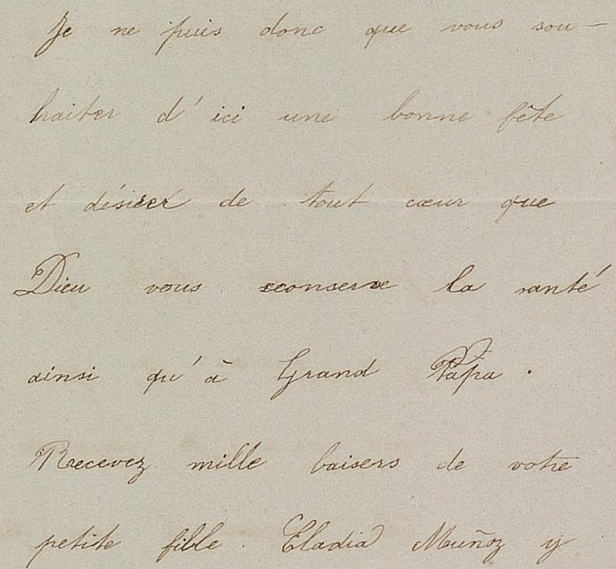 Je ne puis donc que vous sou-
haiter d'ici une bonne fête
et désirer de tout cœur que
Dieu vous conserve la santé
ainsi qu'à Grand Papa.
Recevez mille baisers de votre
petite fille. Eladia Muñoz y